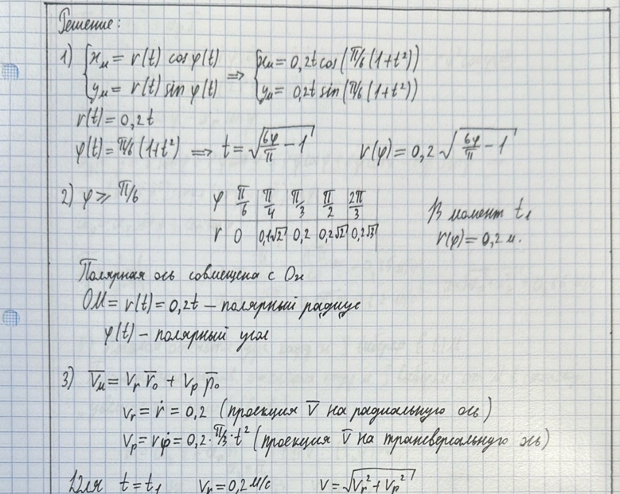 Решение:
1) { xм = r(t) cosφ(t) ⇒ { xм = 0,2t cos(π/6(1+t²))
yм = r(t) sinφ(t) yм = 0,2t sin(π/6(1+t²))
r(t) = 0,2t
φ(t) = π/6(1+t²) ⇒ t = √(6φ/π − 1) r(φ) = 0,2 √(6φ/π − 1)
2) φ ⩾ π/6 φ | π/6 | π/4 | π/3 | π/2 | 2π/3
r | 0 | 0,1√2 | 0,2 | 0,2√2 | 0,2√3
В момент t₁
r(φ) = 0,2 м.
Полярная ось совмещена с Ox
OM = r(t) = 0,2t – полярный радиус
φ(t) – полярный угол
3) V̅м = Vr r̅₀ + Vp p̅₀
Vr = ṙ = 0,2 (проекция V̅ на радиальную ось)
Vp = rφ̇ = 0,2 · π/3 · t² (проекция V̅ на трансверсальную ось)
Для t = t₁ Vr = 0,2 м/с V = √(Vr² + Vp²)